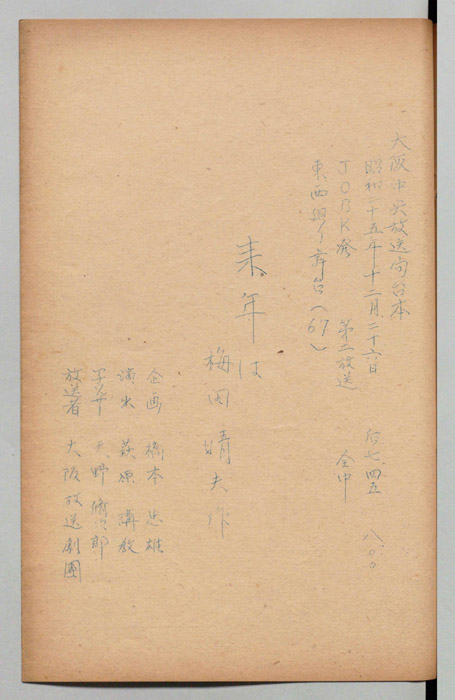 大阪中央放送局台本
昭和二十五年十二月二十六日 后七.四五 八.〇〇
JOBK発 第二放送 全中
東西廻り舞台(67)
来年は
梅田晴夫作
企画 橋本忠雄
演出 萩原
天野 郎
放送者 大阪放送劇團